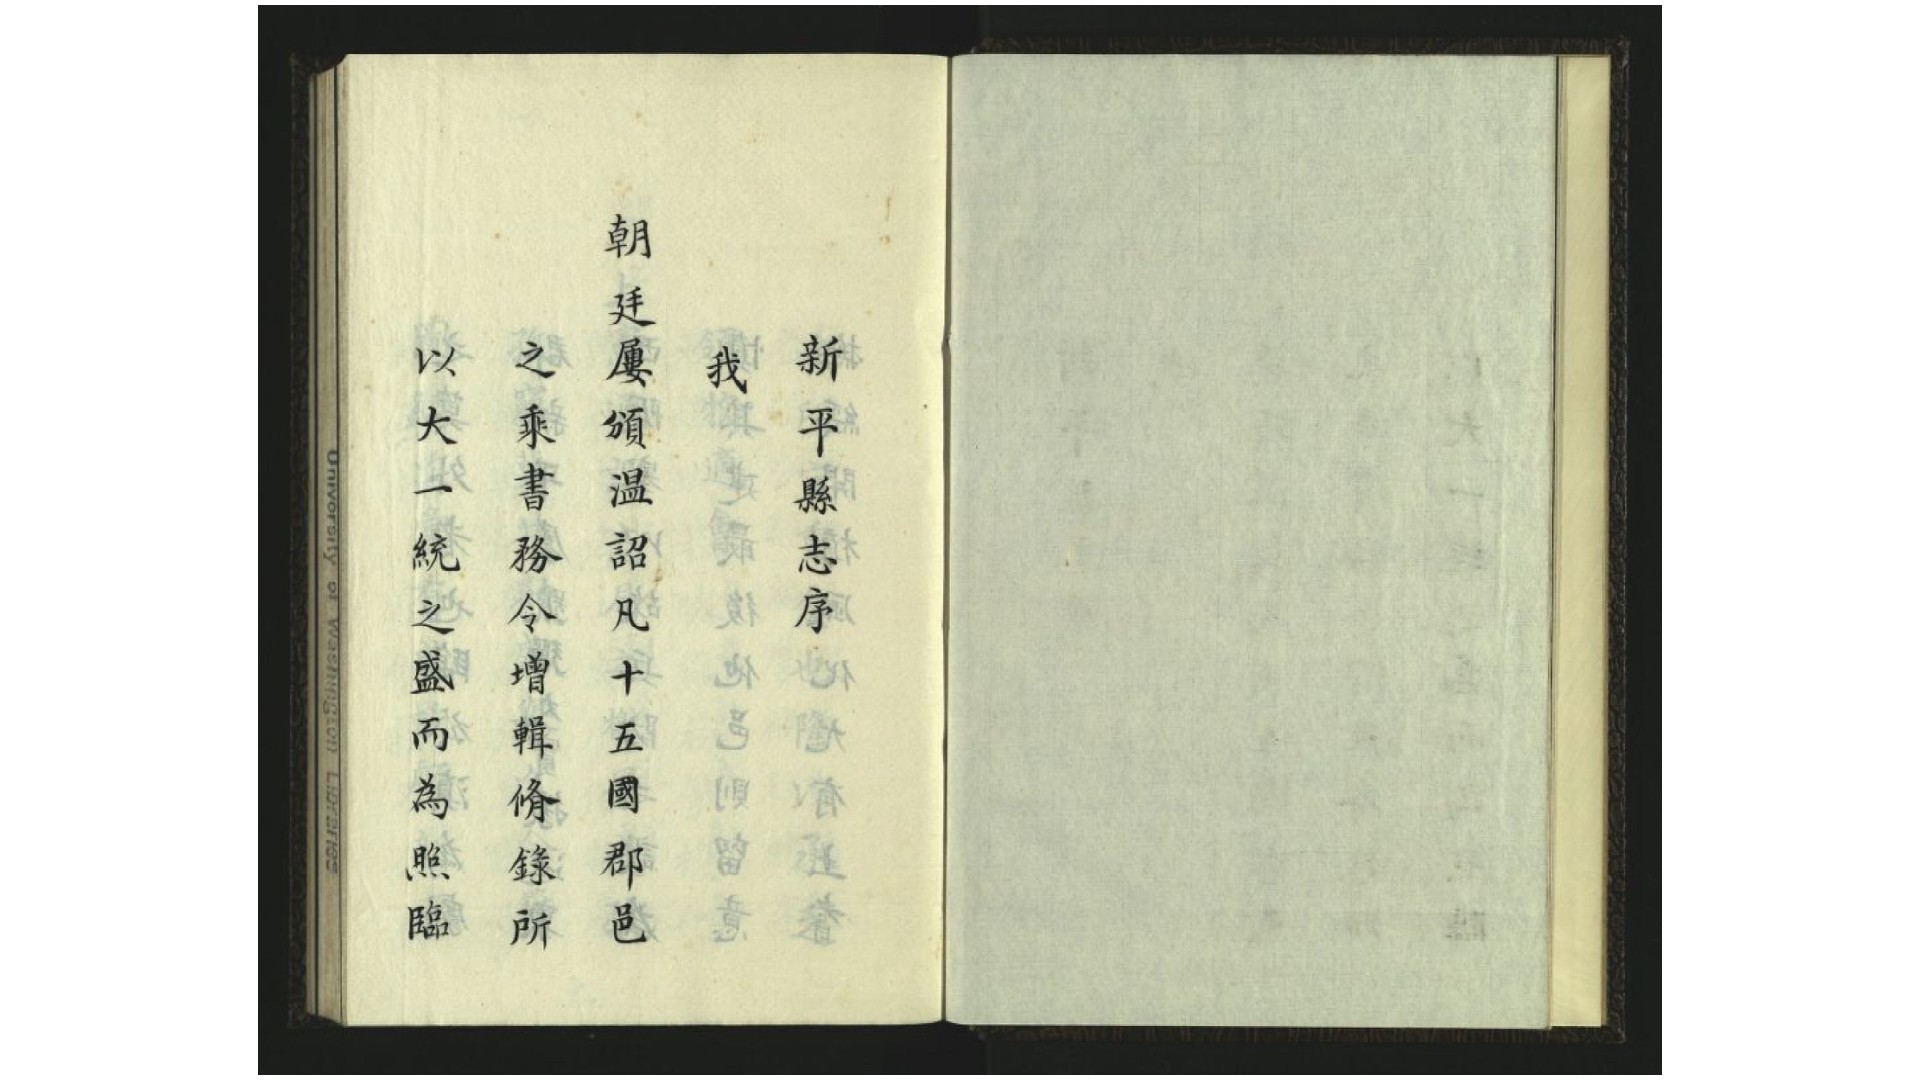 新平縣志序
我
朝廷屢頒温詔凡十五國郡邑
之乘書務令增輯脩錄所
以大一統之盛而為照臨
University of Washington Libraries